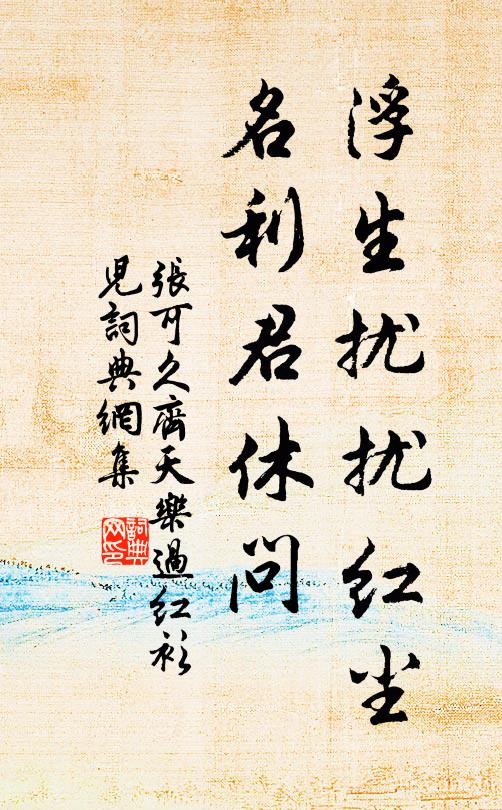 浮生扰扰红尘
名利君休问
張可久齊天樂過红衫
児詞典網集
詞典网印